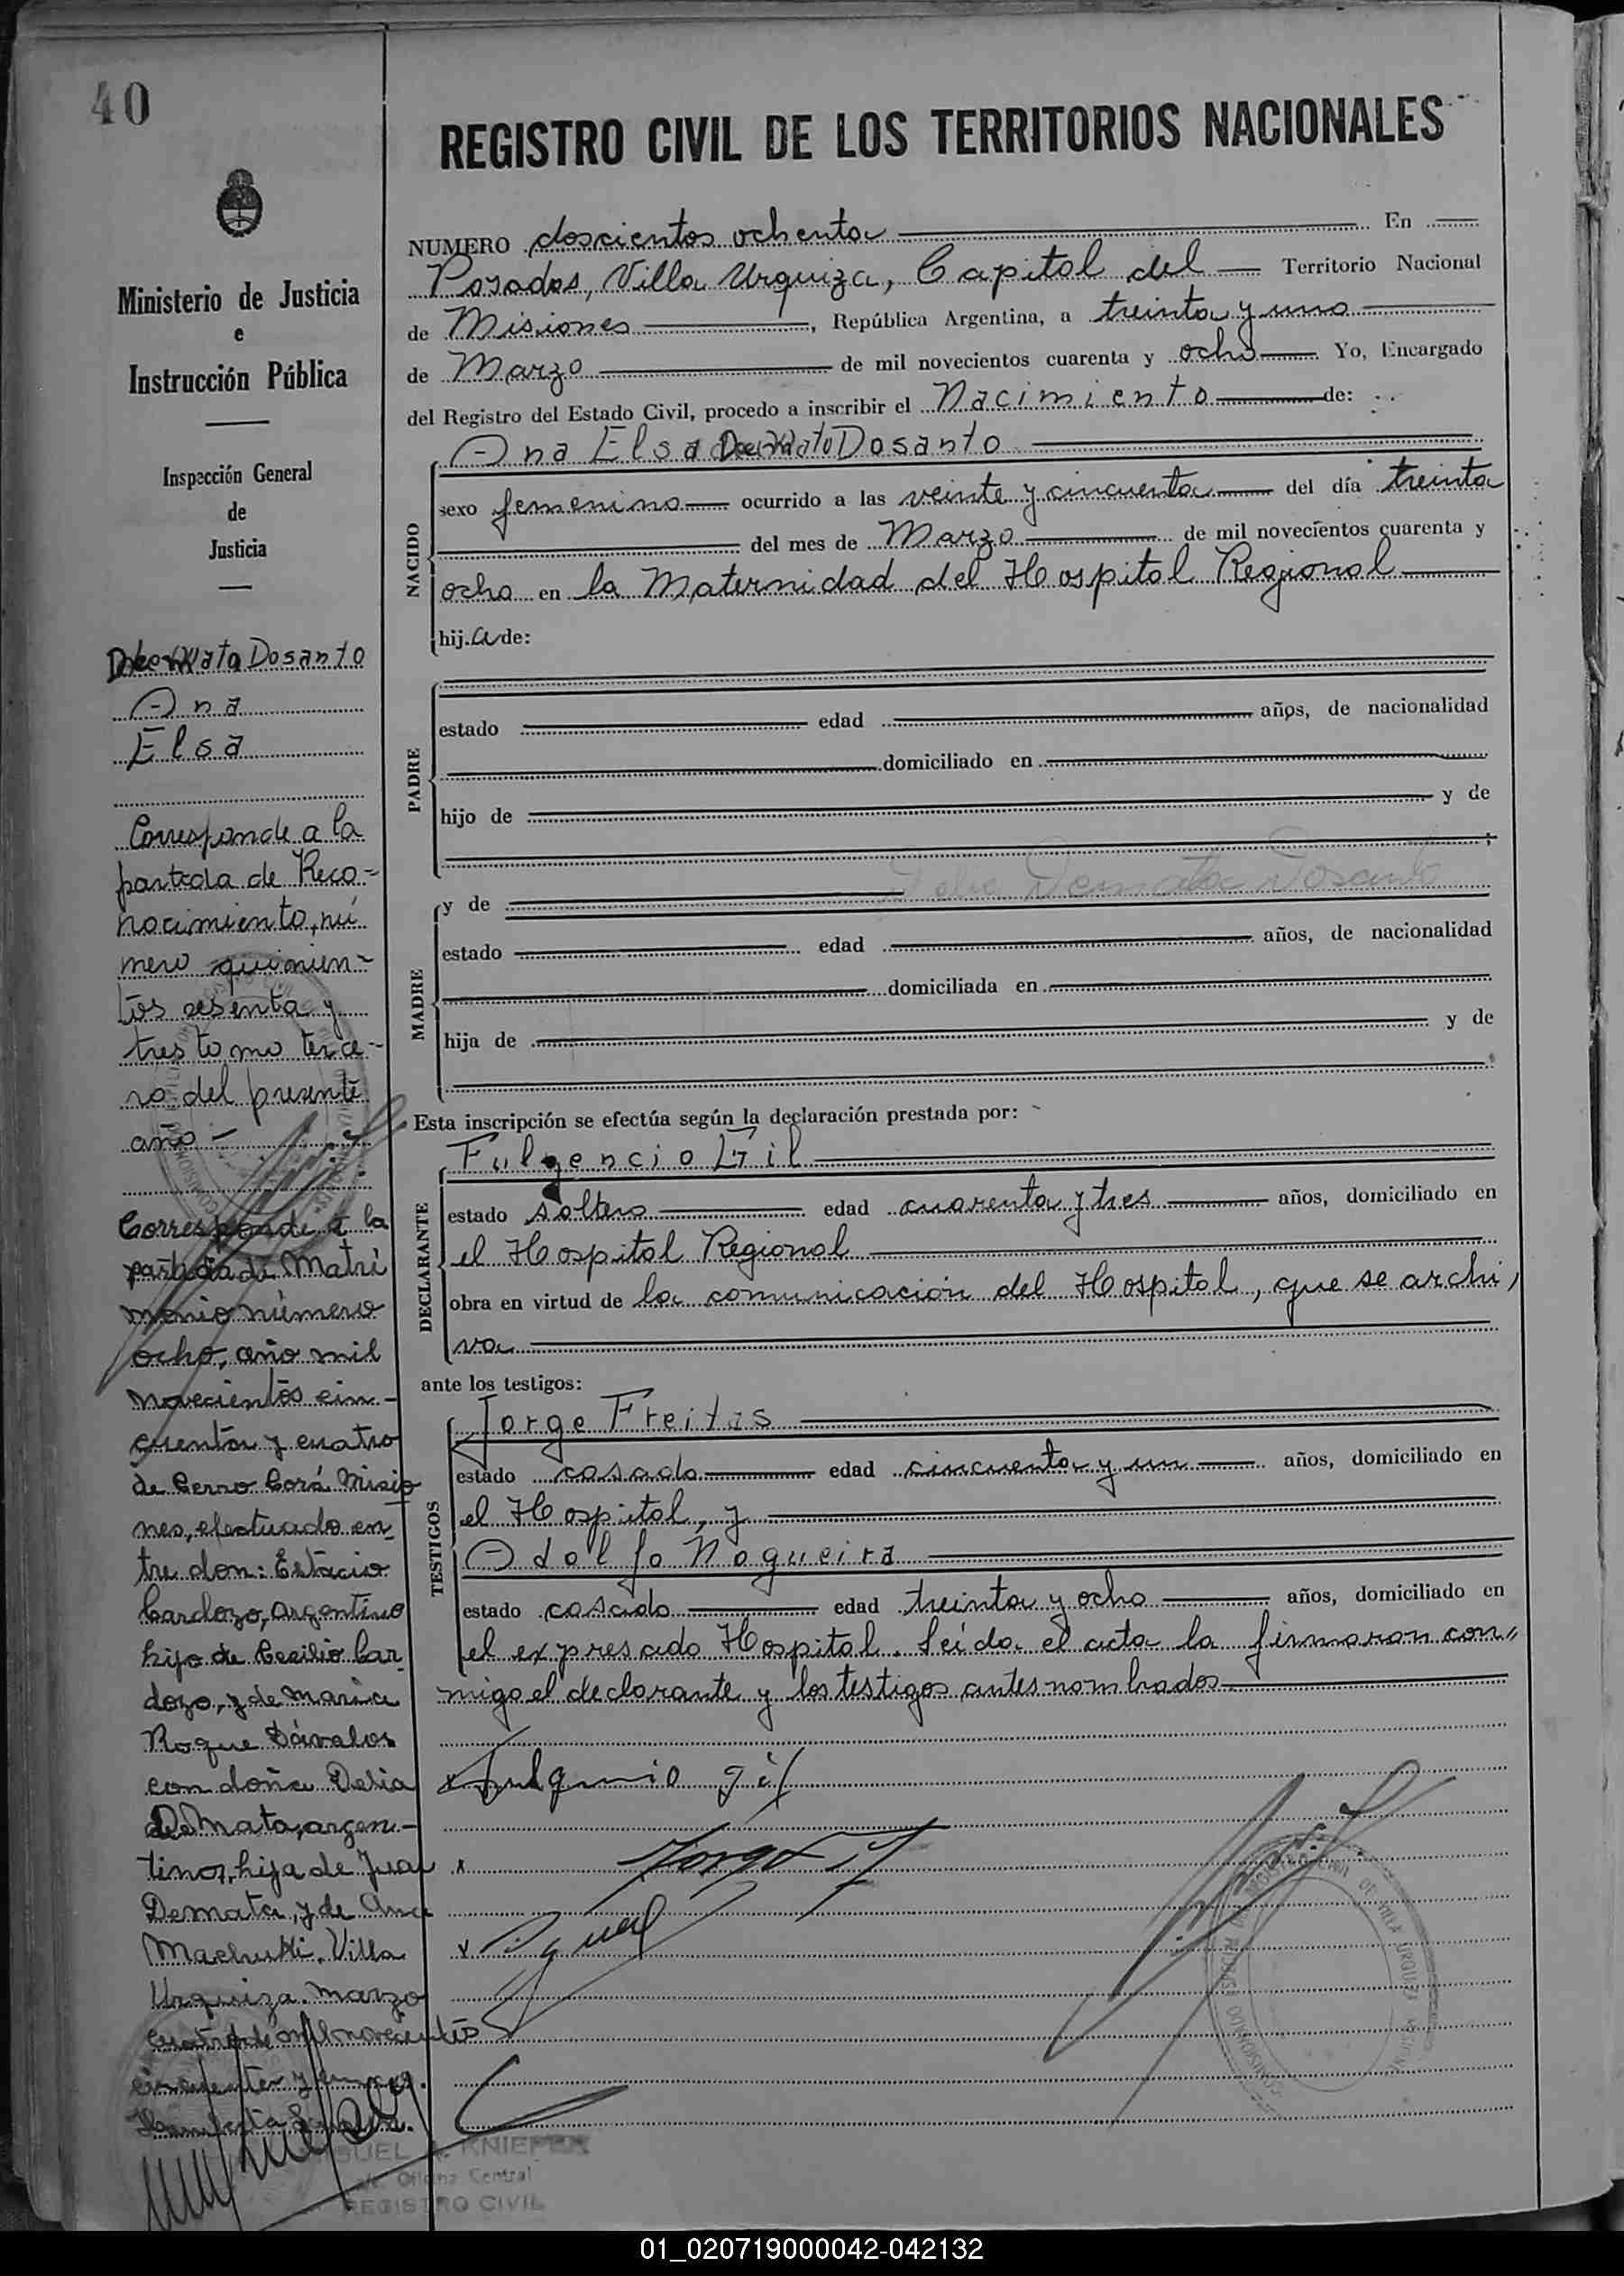 40
Ministerio de Justicia
e
Instrucción Pública
Inspección General
de
Justicia
Dosanto
Ana
Elsa
Corresponde a la
partida de Reco-
nocimiento, nú
mero quinien-
tos sesenta y
tres tomo terce-
ro del presente
año -
Corresponde a la
partida de Matri
monio número
ocho, año mil
novecientos cin-
cuenta y cuatro
de Cerro Corá Misio
nes, efectuado en-
tre don: Estacio
Cardozo, argentino
hijo de Cecilio Car
dozo, y de Maria
Roque Dávalos
con doña Delia
De Mata, argen-
tinos, hija de Jua
Demata, y de Ana
Urquiza. Marzo
REGISTRO CIVIL DE LOS TERRITORIOS NACIONALES
NUMERO doscientos ochenta En
Posadas, Villa Urquiza, Capital del Territorio Nacional
de Misiones, República Argentina, a treinta y uno
de Marzo de mil novecientos cuarenta y ocho Yo, Encargado
del Registro del Estado Civil, procedo a inscribir el Nacimiento de:
Ana Elsa Dosanto
NACIDO
sexo femenino ocurrido a las veinte y cincuenta del día treinta
del mes de Marzo de mil novecientos cuarenta y
ocho en la Maternidad del Hospital Regional
hij.a de:
PADRE
estado edad años, de nacionalidad
domiciliado en
hijo de y de
;
Delia Demata Dosanto
y de
MADRE
estado edad años, de nacionalidad
domiciliada en
hija de y de
Esta inscripción se efectúa según la declaración prestada por:
Fulgencio Gil
DECLARANTE
estado soltero edad cuarenta y tres años, domiciliado en
el Hospital Regional
obra en virtud de la comunicación del Hospital, que se archi
va
ante los testigos:
Jorge Freitas
TESTIGOS
estado casado edad cincuenta y un años, domiciliado en
el Hospital, y
Adolfo Nogueira
estado casado edad treinta y ocho años, domiciliado en
el expresado Hospital. Leída el acta la firmaron con„
migo el declarante y los testigos antes nombrados
Fulgencio Gil
Jorge F
KNIEPER
Oficina Central
REGISTRO CIVIL
01_020719000042-042132